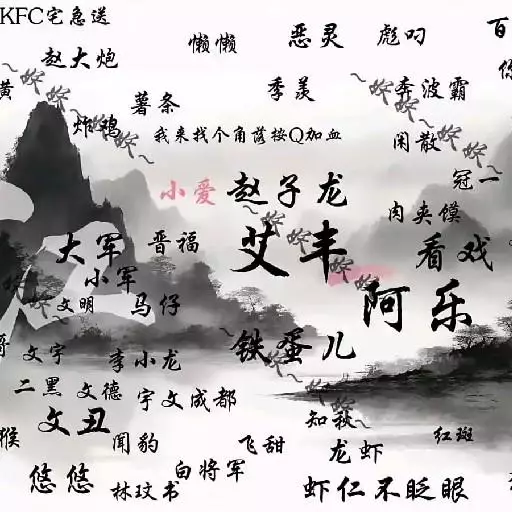 KFC宅急送
懒懒
恶灵
彪叼
百
赵大炮
你
黄
薯条
季羡
奔波霸
炸鸡
我来找个角落按Q加血
闲散
冠一
小爱
赵子龙
肉夹馍
大军
晋福
艾丰
看戏
小军
文明
马仔
阿乐
哥
文宇
李小龙
铁蛋儿
二黑
文德
宇文成都
文丑
知秋
猴
闻豹
飞甜
龙虾
红斑
悠悠
林玟书
白将军
虾仁不眨眼